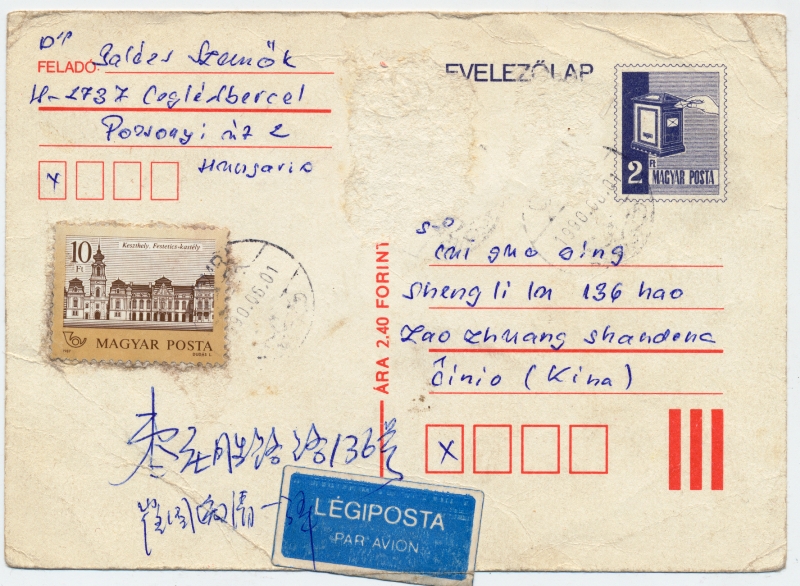 FELADÓ: Balázs Szemők
H-2737 Ceglédbercel
Pozsonyi út 2
Hungaria
x
EVELEZŐLAP
2
MAGYAR POSTA
10
Ft
Keszthely, Festetics-kastély
MAGYAR POSTA
1990.06.01
ÁRA 2.40 FORINT
cui guo qing
shengli ln 136 hao
Zao zhuang shandong
Činio (Kina)
x
枣庄胜利路136号
崔国
LÉGIPOSTA
PAR AVION